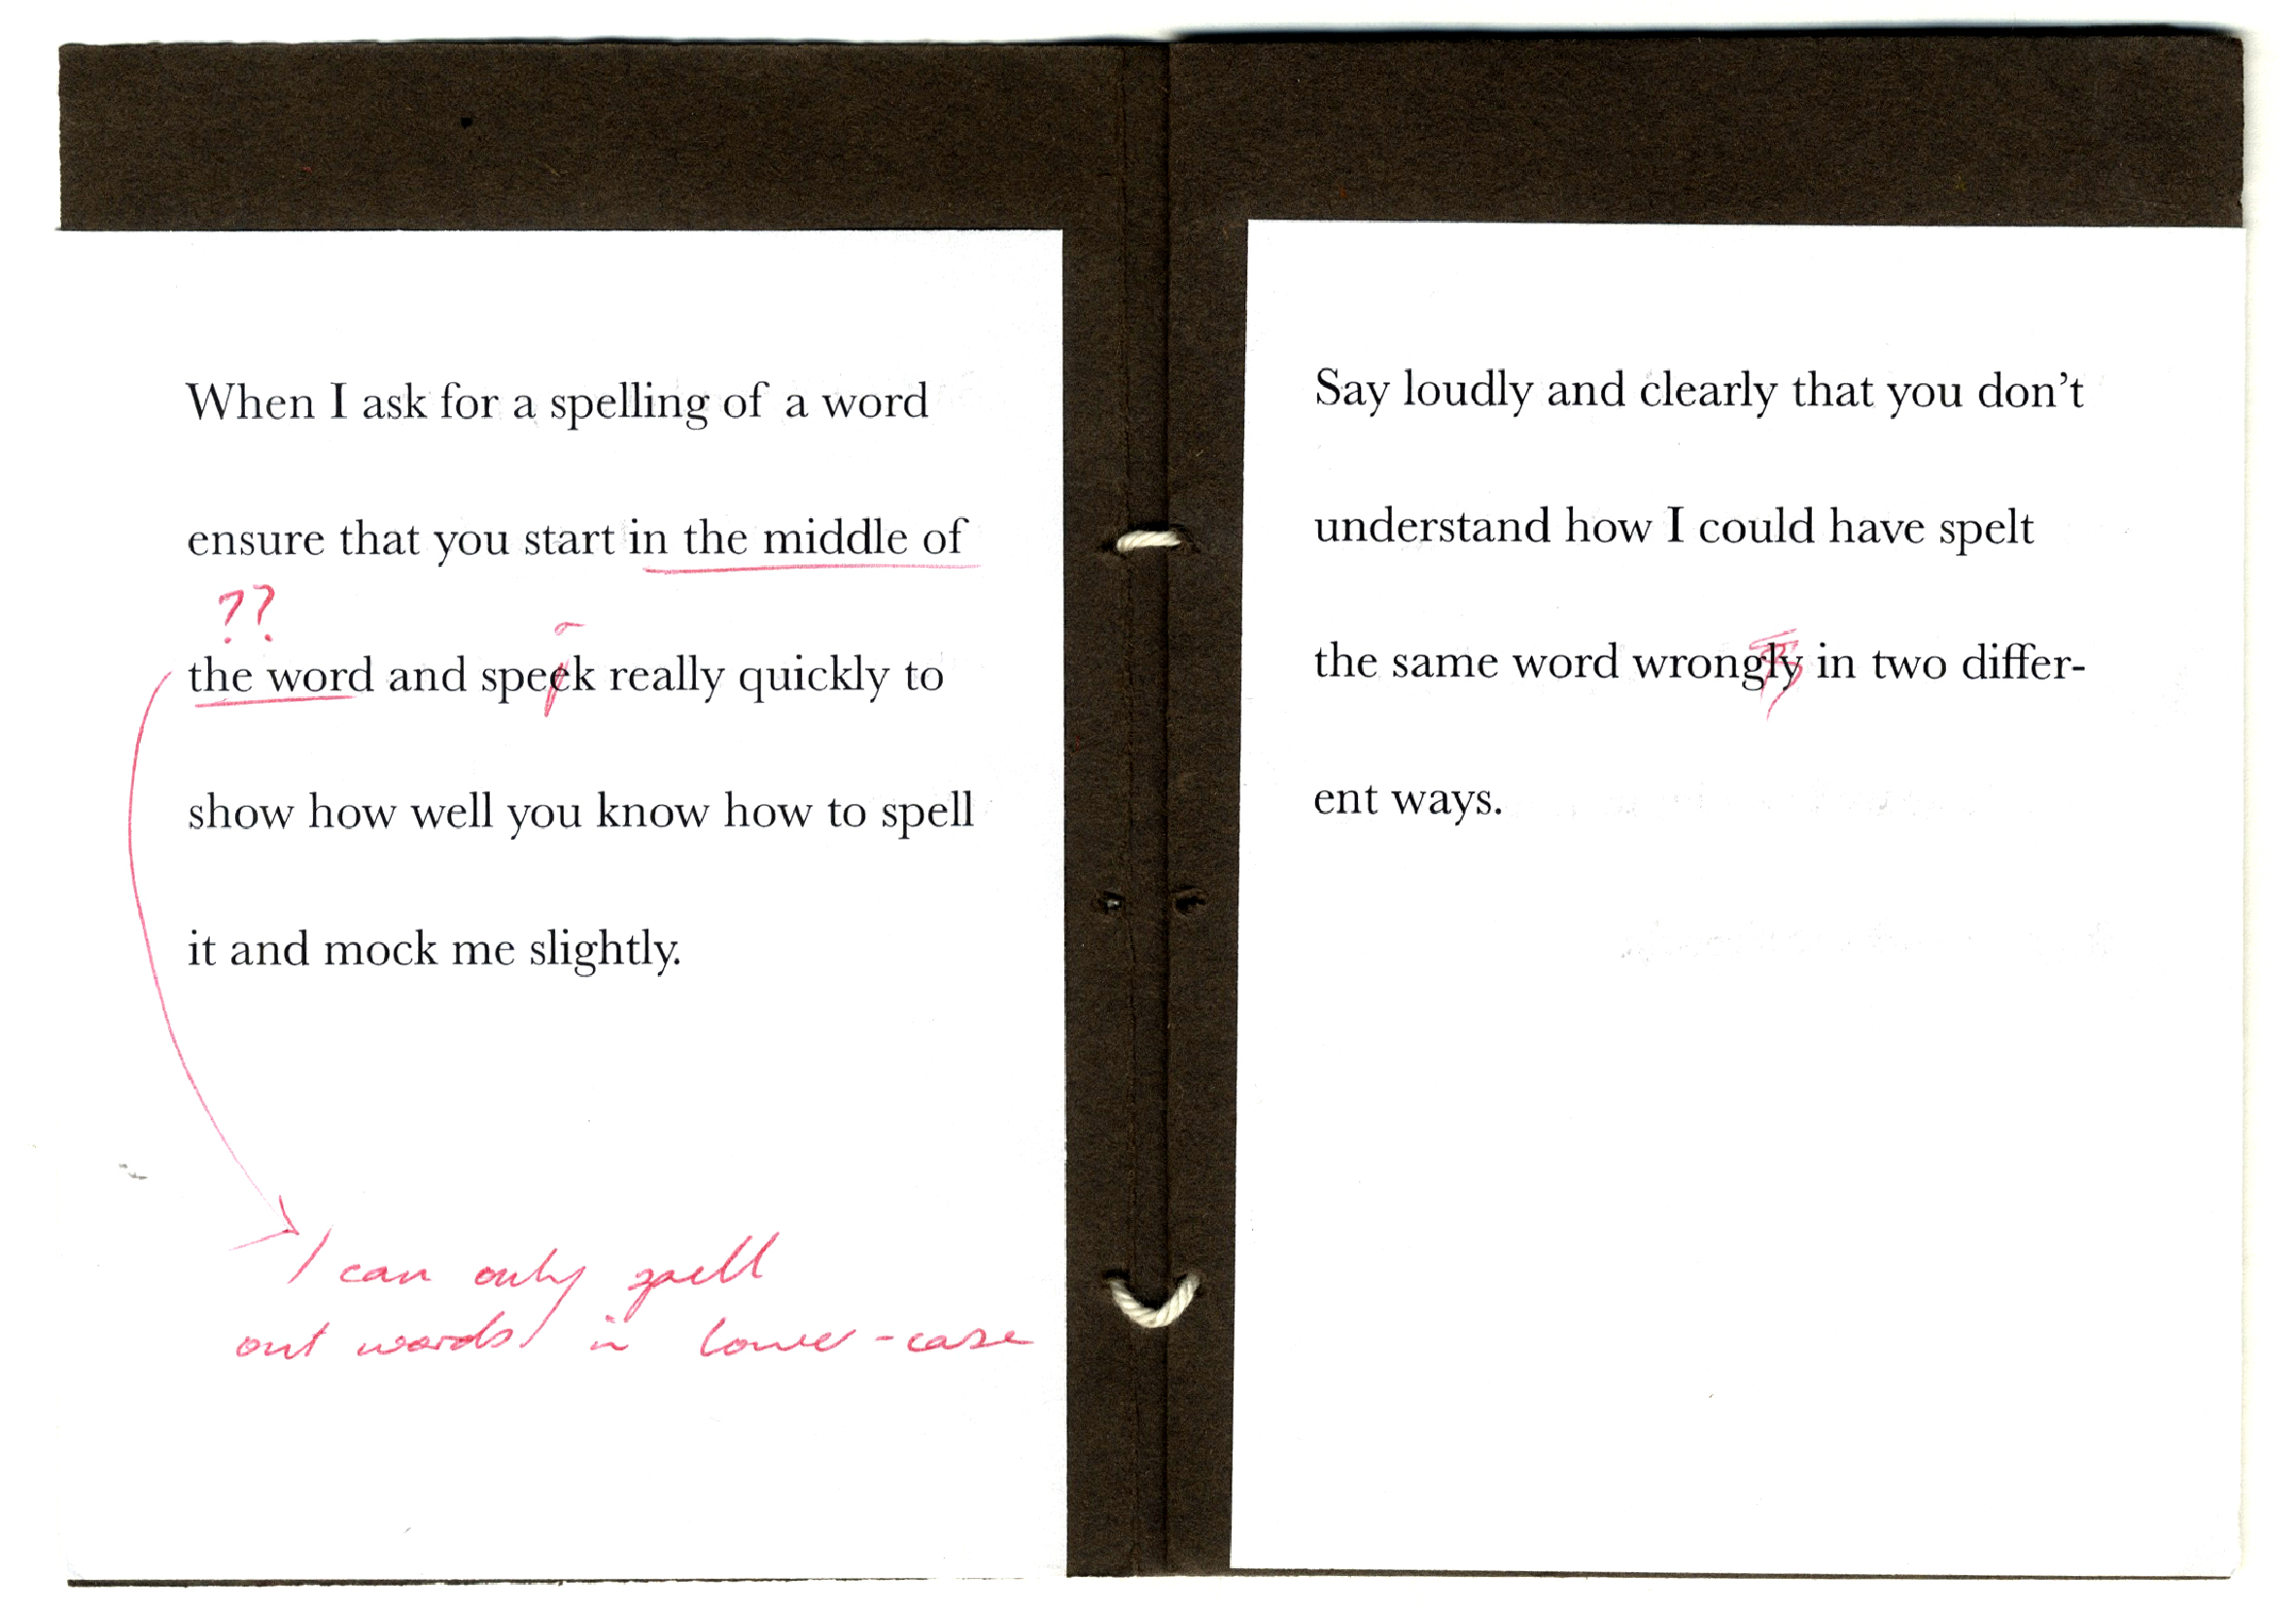 When I ask for a spelling of a word
ensure that you start in the middle of
??
a
the word and speek really quickly to
show how well you know how to spell
it and mock me slightly.
I can only spell
out words in lower-case
Say loudly and clearly that you don't
understand how I could have spelt
the same word wrongly in two differ-
ent ways.